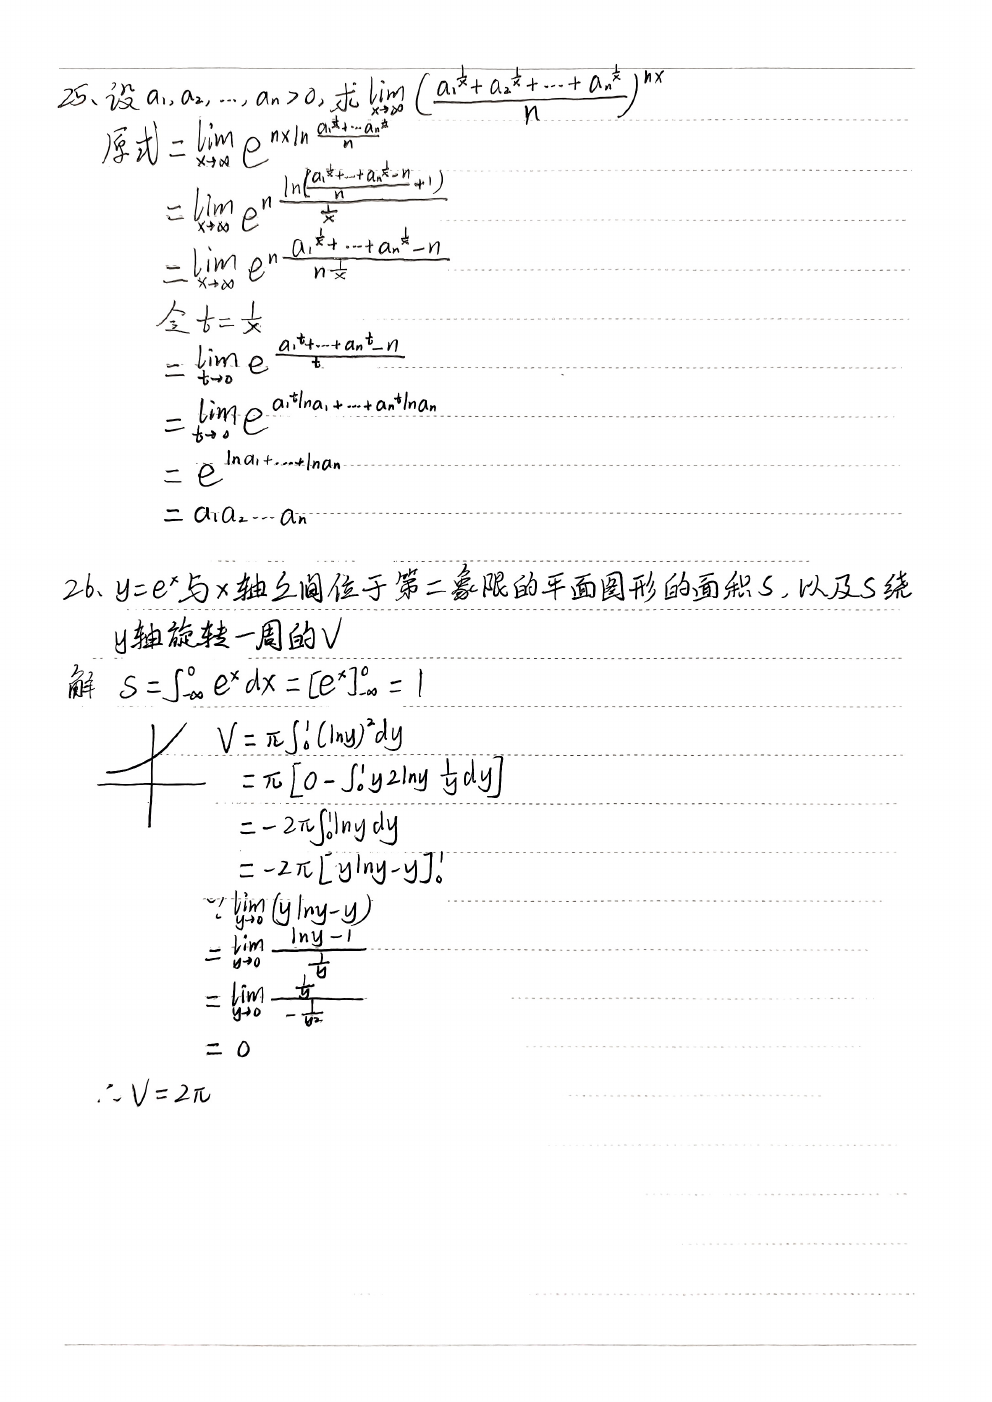 25、设 a₁, a₂, …, aₙ > 0, 求 lim_{x→∞} ( (a₁^{1/x} + a₂^{1/x} + … + aₙ^{1/x}) / n )^{nx}
原式 = lim_{x→∞} e^{nx ln (a₁^{1/x} + … aₙ^{1/x})/n}
= lim_{x→∞} e^{n ln((a₁^{1/x} + … + aₙ^{1/x} - n)/n + 1) / (1/x)}
= lim_{x→∞} e^{n (a₁^{1/x} + … + aₙ^{1/x} - n) / (n 1/x)}
令 t = 1/x
= lim_{t→0} e^{(a₁^t + … + aₙ^t - n)/t}
= lim_{t→0} e^{a₁^t ln a₁ + … + aₙ^t ln aₙ}
= e^{ln a₁ + … + ln aₙ}
= a₁a₂…aₙ
26、y=e^x 与 x轴之间位于第二象限的平面图形的面积S, 以及S绕
y轴旋转一周的V
解 S = ∫_{-∞}^0 e^x dx = [e^x]_{-∞}^0 = 1
V = π∫_0^1 (ln y)² dy
= π[0 - ∫_0^1 y 2ln y 1/y dy]
= -2π∫_0^1 ln y dy
= -2π[y ln y - y]_0^1
∵ lim_{y→0} (y ln y - y)
= lim_{y→0} (ln y - 1)/(1/y)
= lim_{y→0} (1/y)/(-1/y²)
= 0
∴ V = 2π